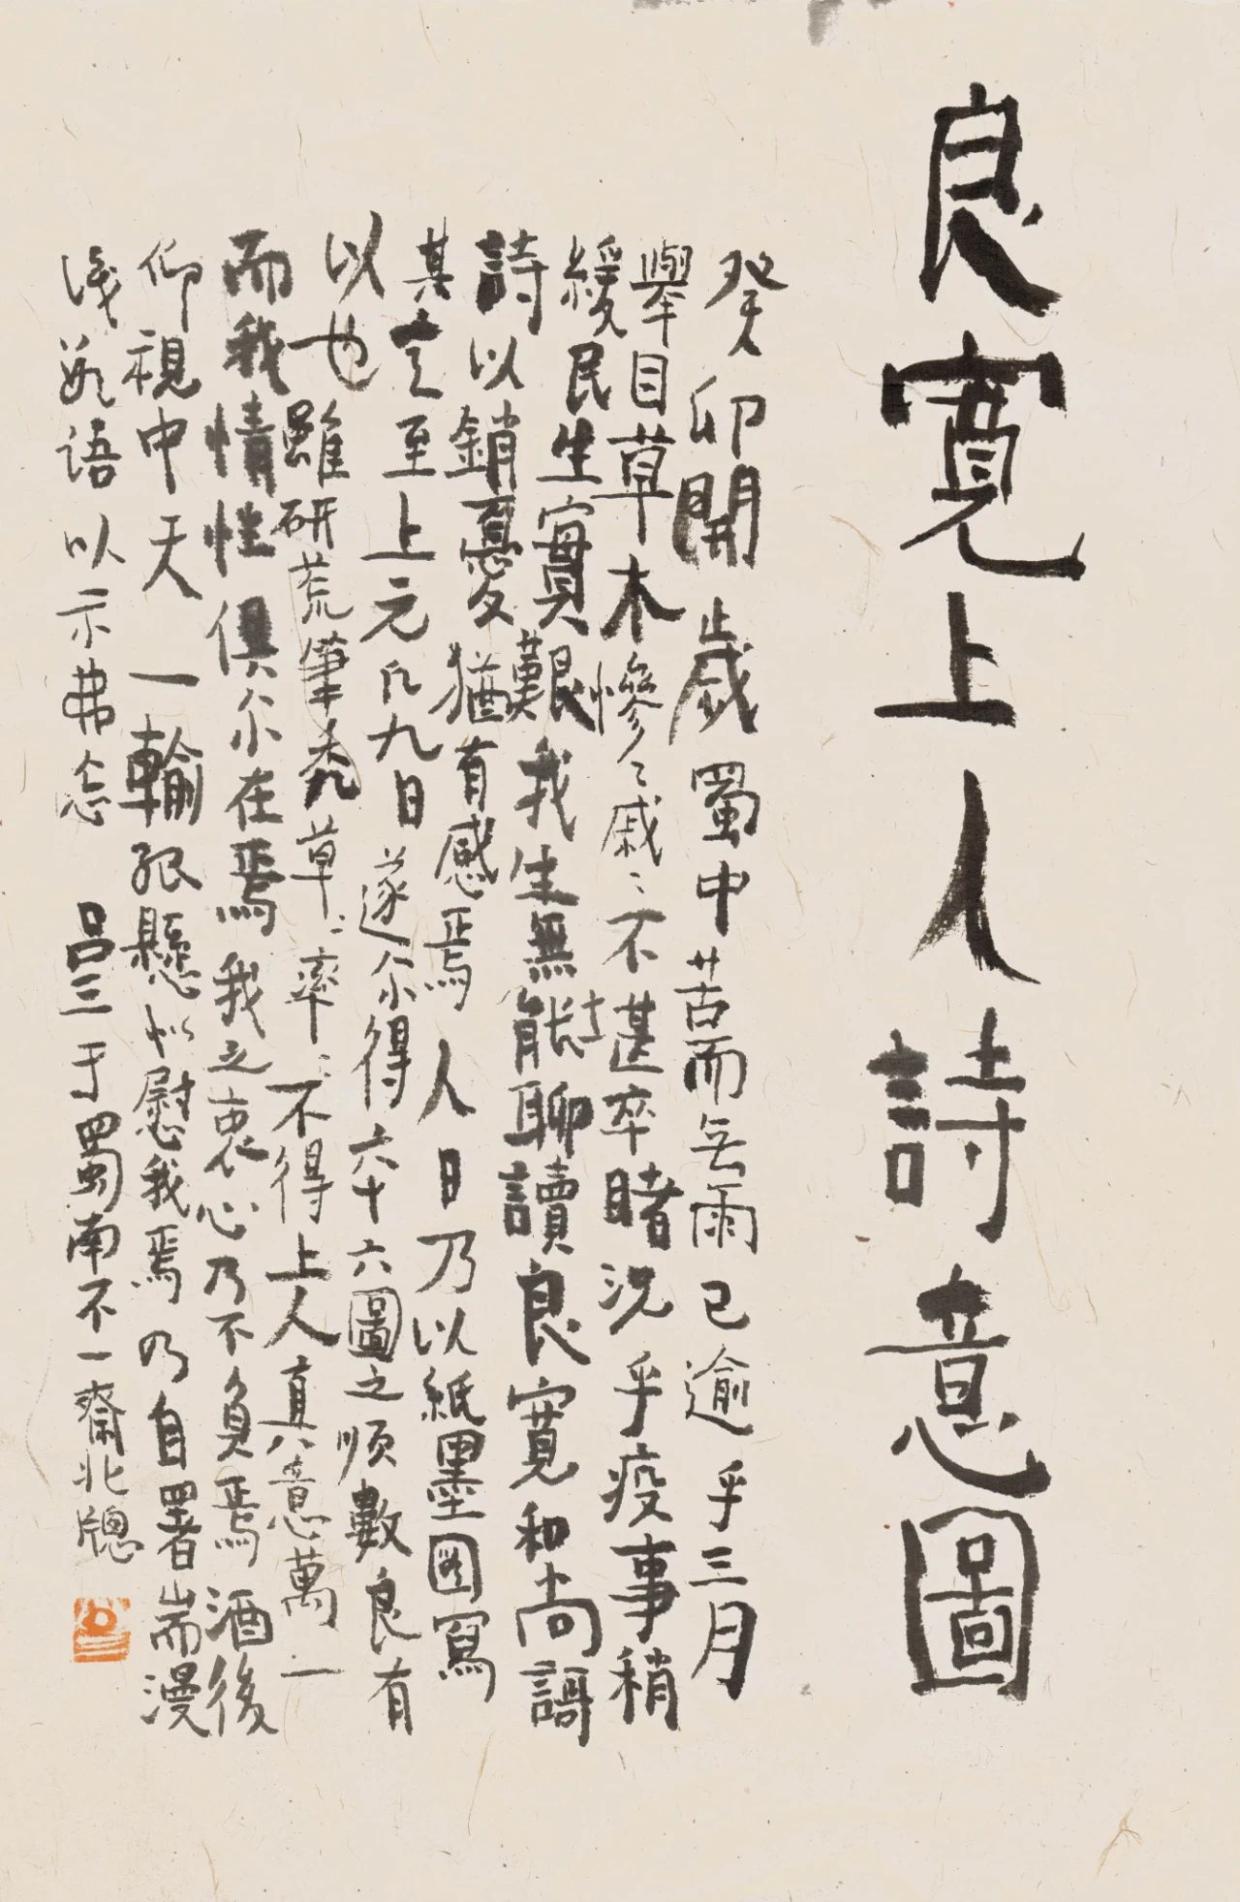 良寬上人詩意圖
癸卯開歲蜀中苦而無雨已逾乎三月
舉目草木慘々戚々不甚卒睹況乎疫事稍
緩民生實艱難我生無能聊讀良寬和尚詩
詩以銷憂猶有感焉人日乃以紙墨圖寫
其意至上元凡九日遂尔得六十六圖之順數良有
以也雖研荒筆禿草々率々不得上人真意萬一
而我情性俱尔在焉我之衷心乃不負焉酒後
仰視中天一輪孤懸似慰我焉乃自署耑漫
識數語以示弗忘 呂三于蜀南不一齋北牕